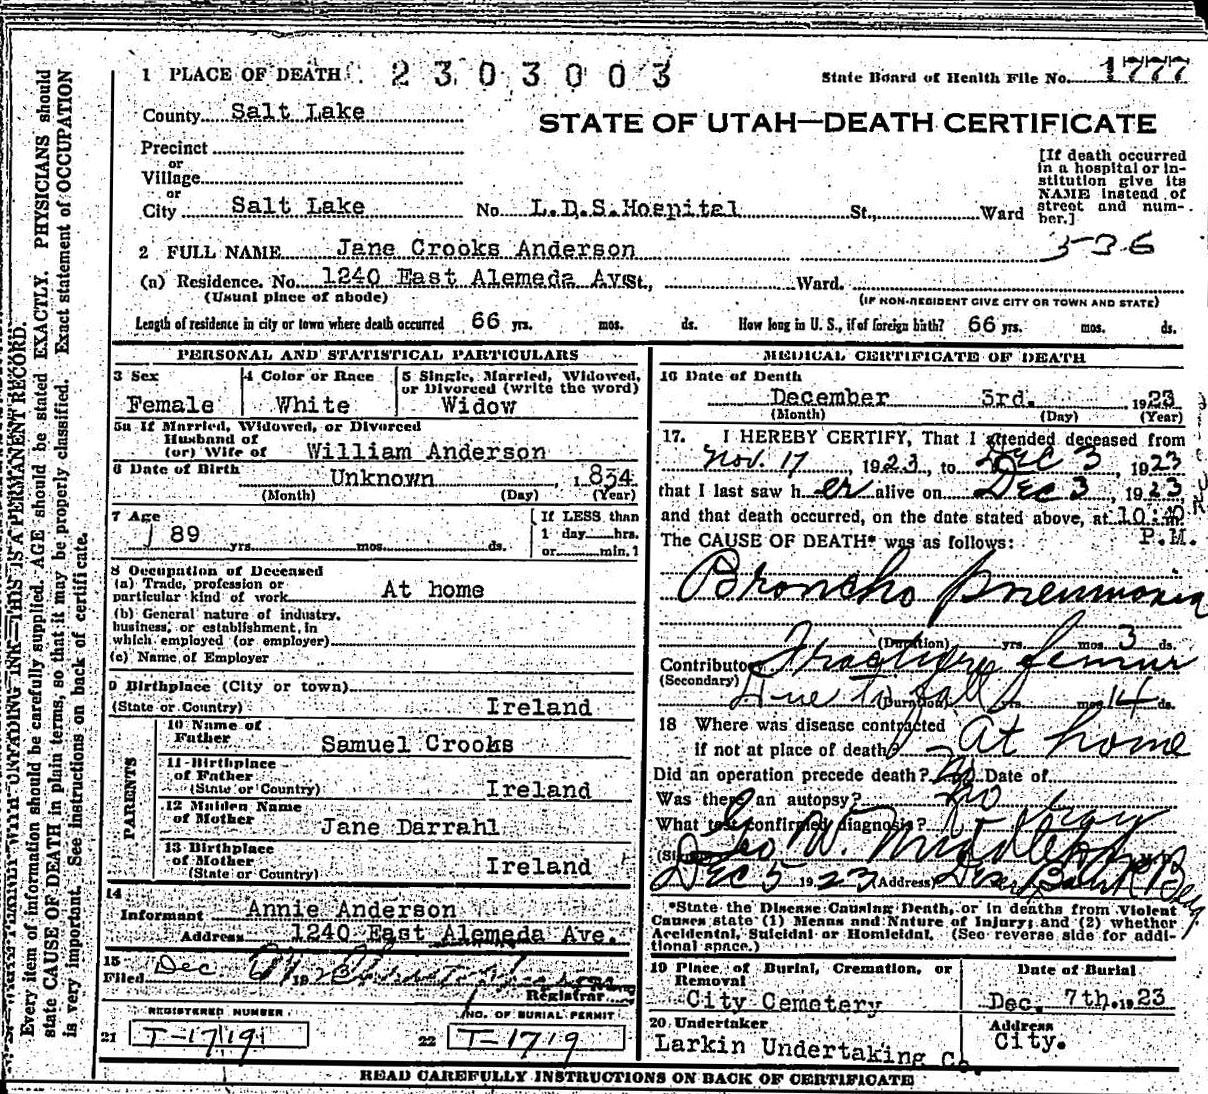 1 PLACE OF DEATH 2303003 State Board of Health File No. 1777
County Salt Lake
STATE OF UTAH—DEATH CERTIFICATE
Precinct
or
Village
or
City Salt Lake No. L.D.S.Hospital St., Ward
[If death occurred
in a hospital or in-
stitution give its
NAME instead of
street and num-
ber.]
536
2 FULL NAME Jane Crooks Anderson
(a) Residence. No. 1240 East Alemeda Ave St., Ward.
(Usual place of abode) (IF NON-RESIDENT GIVE CITY OR TOWN AND STATE)
Length of residence in city or town where death occurred 66 yrs. mos. ds. How long in U. S., if of foreign birth? 66 yrs. mos. ds.
PERSONAL AND STATISTICAL PARTICULARS
3 Sex 4 Color or Race 5 Single, Married, Widowed,
or Divorced (write the word)
Female White Widow
5a If Married, Widowed, or Divorced
Husband of
(or) Wife of William Anderson
6 Date of Birth Unknown , 1834
(Month) (Day) (Year)
7 Age If LESS than
89 1 day hrs.
yrs. mos. ds. or min.1
8 Occupation of Deceased
(a) Trade, profession or
particular kind of work At home
(b) General nature of industry,
business, or establishment in
which employed (or employer)
(c) Name of Employer
9 Birthplace (City or town)
(State or Country) Ireland
PARENTS
10 Name of
Father Samuel Crooks
11 Birthplace
of Father
(State or Country) Ireland
12 Maiden Name
of Mother Jane Darrahl
13 Birthplace
of Mother
(State or Country) Ireland
14
Informant Annie Anderson
Address 1240 East Alemeda Ave.
15
Filed Dec 19
Registrar
REGISTERED NUMBER NO. OF BURIAL PERMIT
21 T-1719 22 T-1719
MEDICAL CERTIFICATE OF DEATH
16 Date of Death
December 3rd. 1923
(Month) (Day) (Year)
17. I HEREBY CERTIFY, That I attended deceased from
Nov. 17, 1923, to Dec 3 1923
that I last saw her alive on Dec 3, 1923,
and that death occurred, on the date stated above, at 10:40 m.
P.M.
The CAUSE OF DEATH* was as follows:
Broncho Pneumonia
(Duration) yrs. mos. 3 ds.
Contributory Fracture femur
(Secondary) Due to fall (Duration) yrs. mos. 14 ds.
18 Where was disease contracted
if not at place of death? At home
Did an operation precede death? No Date of
Was there an autopsy? no
What test confirmed diagnosis? X ray
(Signed) Geo W. Middleton
Dec 5 1923 (Address) Deseret Bank Bldg
*State the Disease Causing Death, or in deaths from Violent
Causes state (1) Means and Nature of Injury; and (2) whether
Accidental, Suicidal or Homicidal. (See reverse side for addi-
tional space.)
19 Place of Burial, Cremation, or
Removal Date of Burial
City Cemetery Dec. 7th. 1923
20 Undertaker Address
Larkin Undertaking Co. City.
READ CAREFULLY INSTRUCTIONS ON BACK OF CERTIFICATE
THIS IS A PERMANENT RECORD.
Every item of information should be carefully supplied. AGE should be stated EXACTLY. PHYSICIANS should
state CAUSE OF DEATH in plain terms, so that it may be properly classified. Exact statement of OCCUPATION
is very important. See instructions on back of certificate.